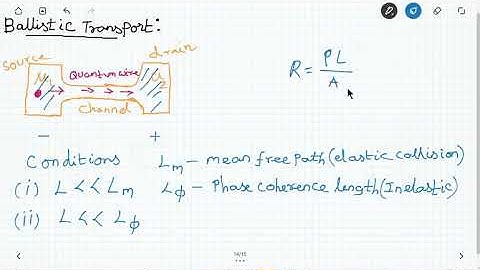 Ballistic Transport:
source
drain
μ1
Quantum wire
μ2
channel
R = ρL / A
- +
Conditions Lm - mean free path (elastic collision)
(i) L << Lm Lϕ - Phase coherence length (Inelastic)
(ii) L << Lϕ
14/15